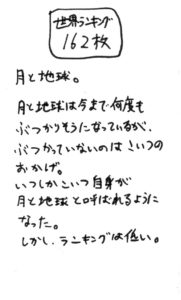 世界ランキング
162枚
月と地球。
月と地球は今まで何度も
ぶつかりそうになっているが、
ぶつかっていないのはこいつの
おかげ。
いつしかこいつ自身が
月と地球と呼ばれるように
なった。
しかし、ランキングは低い。